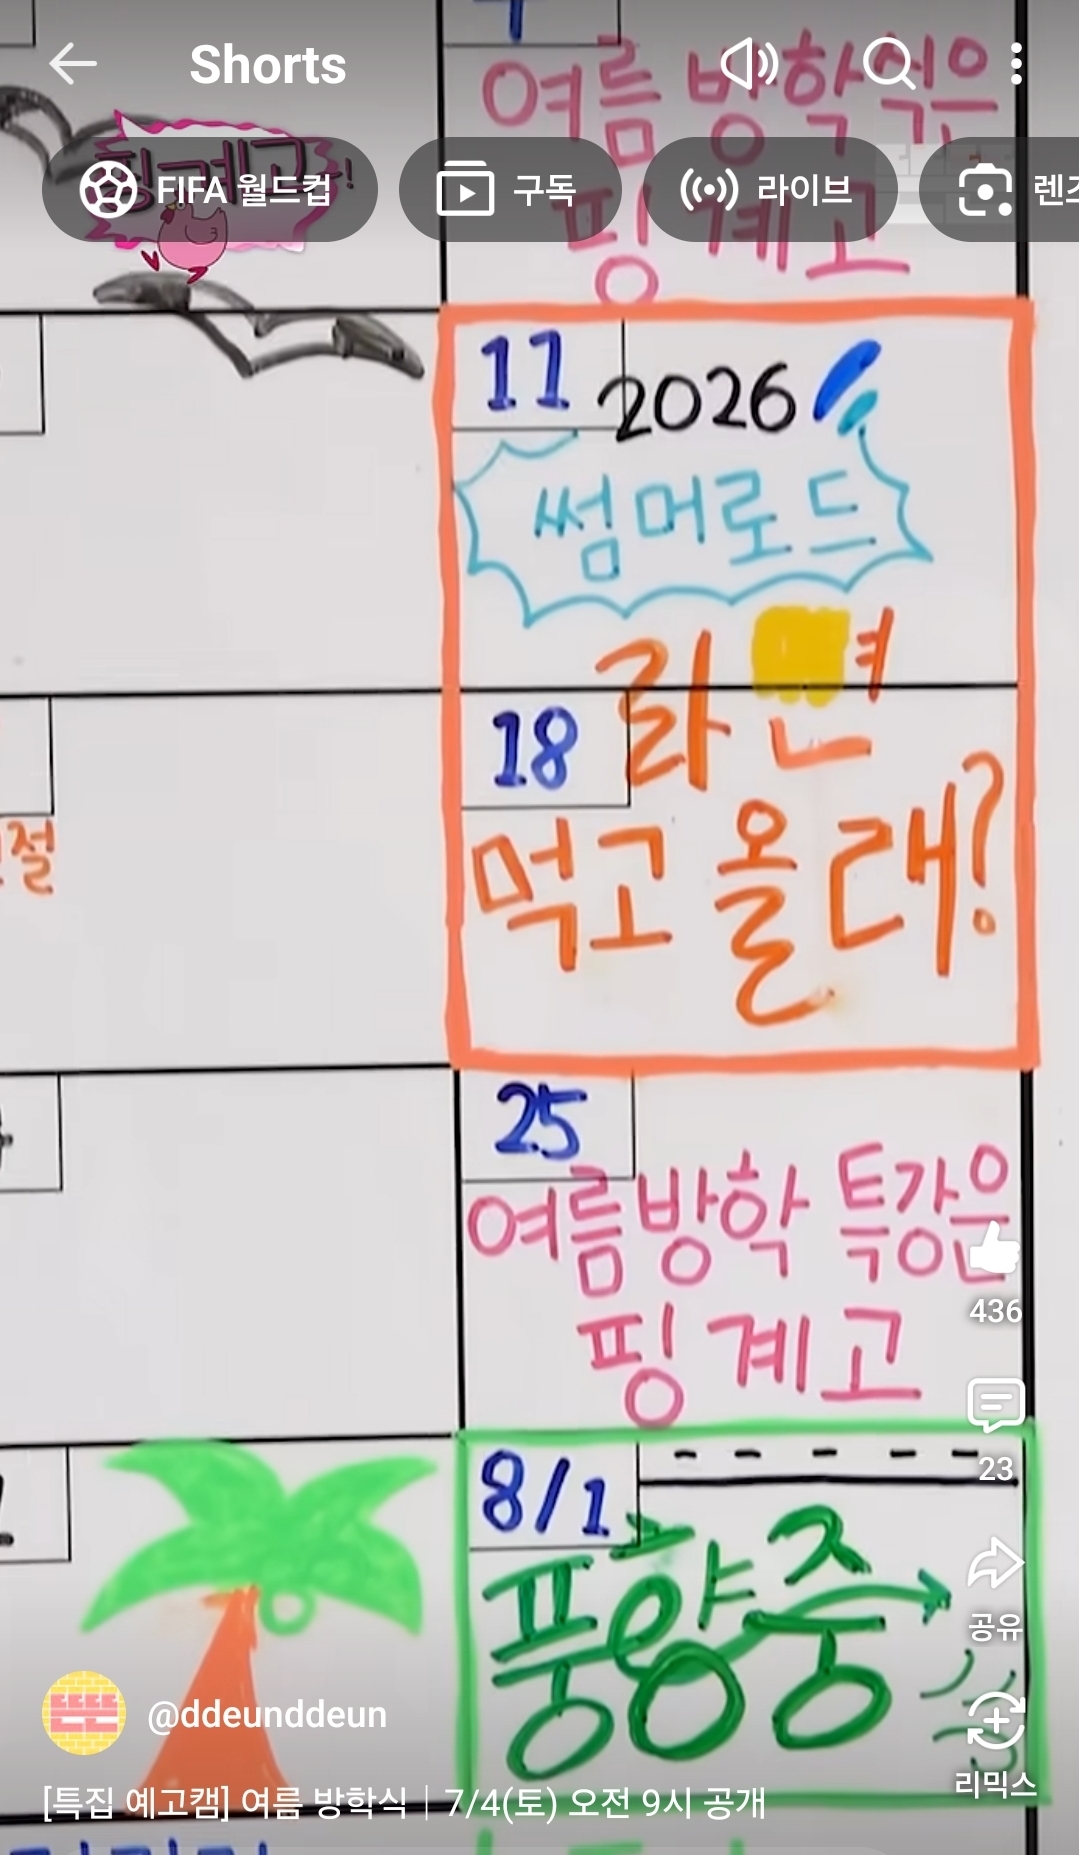 Shorts
여름 방학식은
핑계고!
FIFA 월드컵
구독
라이브
핑계고
11
2026
썸머로드
라면
18
먹고 올래?
절
25
여름방학 특강은
핑계고
436
23
8/1
풍향중
공유
@ddeunddeun
리믹스
[특집 예고캠] 여름 방학식 | 7/4(토) 오전 9시 공개